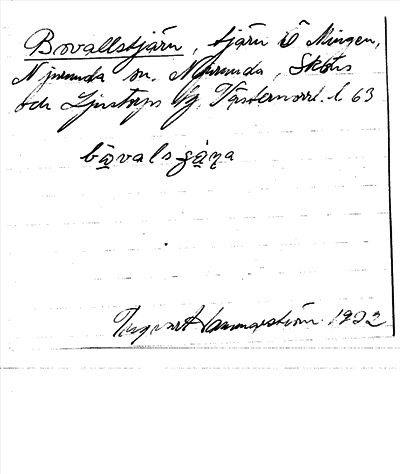 Bovallstjärn, tjärn Ö Mingen,
Njurunda sn. Njurunda, Sköns
och Ljustorps tg. Västernorrl. l. 63
bovalsșạ̈ṇa
Ingvart Hammarström 1922